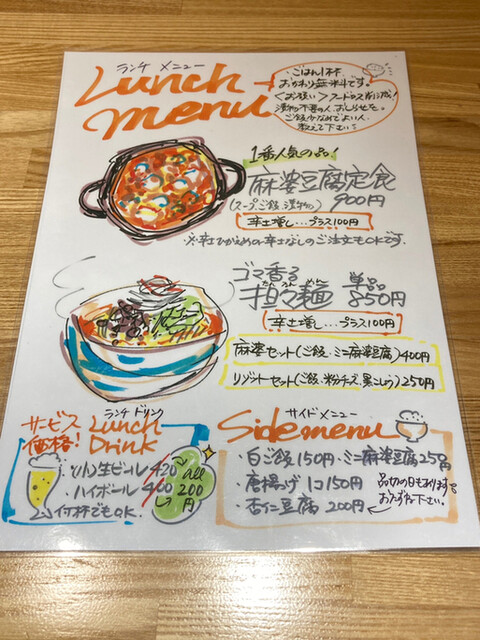 ランチ メニュー
Lunch
menu
・ごはん1杯
おかわり無料です。
<お願い>フードロス削減!
漬物不要の人、おしらせを。
ご飯少なめでよい人、
教えて下さい!
1番人気の品!
麻婆豆腐定食
(スープ、ご飯、漬物) 900円
辛さ増し…プラス100円
※辛さひかえめの辛さなしのご注文もOKです.
ゴマ香る
担々麺 単品
850円
辛さ増し…プラス100円
麻婆セット(ご飯、ミニ麻婆豆腐)400円
リゾットセット(ご飯、粉チーズ、黒こしょう)250円
サービス
価格!
ランチ ドリンク
Lunch
Drink
・(小)生ビール 420
・ハイボール 400
all
200
円
何杯でもOK.
サイドメニュー
Sidemenu
・白ご飯150円・ミニ麻婆豆腐250円
・唐揚げ 1コ150円
・杏仁豆腐 200円
品切の日もあります。
おたずね下さい。